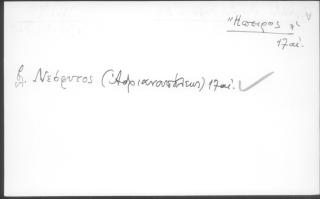 "Ήπειρος
17 αἰ.
βλ. Νεόφυτος (Ἀδριανουπόλεως) 17 αἰ.